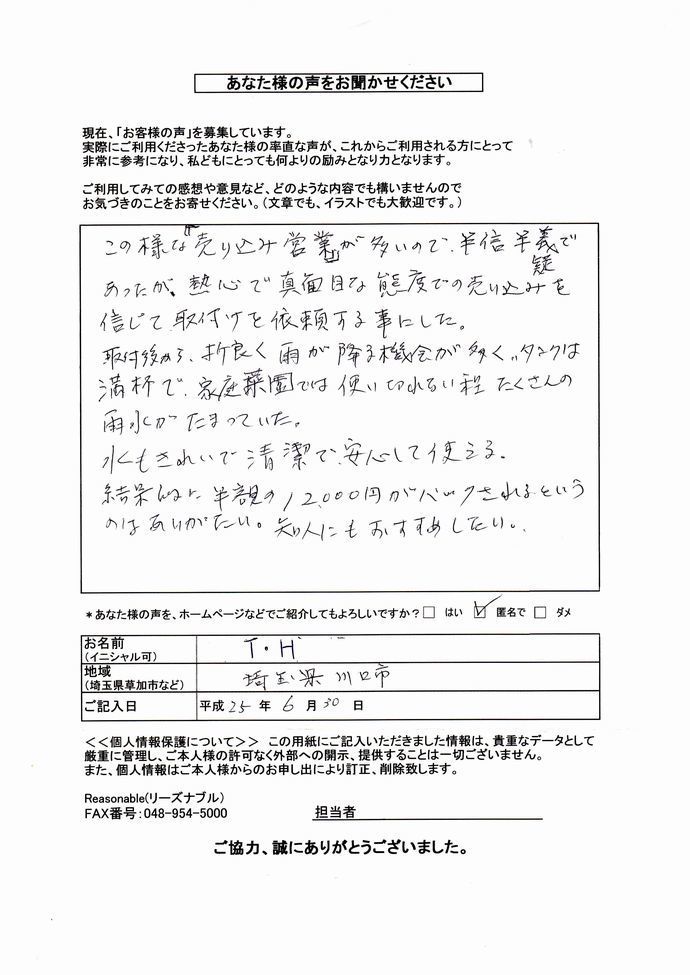 あなた様の声をお聞かせください
現在、「お客様の声」を募集しています。
実際にご利用くださったあなた様の率直な声が、これからご利用される方にとって
非常に参考になり、私どもにとっても何よりの励みとなり力となります。
ご利用してみての感想や意見など、どのような内容でも構いませんので
お気づきのことをお寄せください。（文章でも、イラストでも大歓迎です。）
この様な売り込み営業が多いので、半信半義で
疑
あったが、熱心で真面目な態度での売り込みを
信じて取付けを依頼する事にした。
取付後から、折良く雨が降る機会が多く、タンクは
満杯で、家庭菜園では使い切れない程たくさんの
雨水がたまっていた。
水もきれいで清潔で、安心して使える。
結果的に半額の12,000円がバックされるという
のはありがたい。知人にもおすすめしたい。
*あなた様の声を、ホームページなどでご紹介してもよろしいですか？□ はい ☑ 匿名で □ ダメ
お名前 T・H
（イニシャル可）
地域 埼玉県川口市
（埼玉県草加市など）
ご記入日 平成 25 年 6 月 30 日
＜＜個人情報保護について＞＞ この用紙にご記入いただきました情報は、貴重なデータとして
厳重に管理し、ご本人様の許可なく外部への開示、提供することは一切ございません。
また、個人情報はご本人様からのお申し出により訂正、削除致します。
Reasonable(リーズナブル)
FAX番号：048-954-5000 担当者
ご協力、誠にありがとうございました。